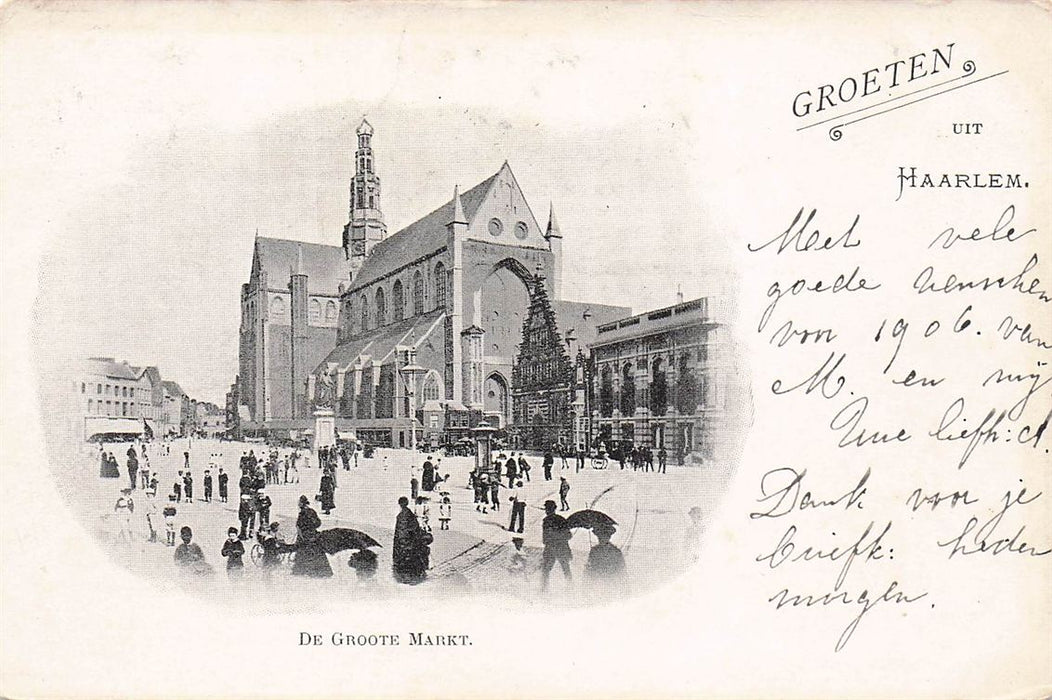 GROETEN
UIT
HAARLEM.
Met vele
goede wenschen
voor 1906. van
M. en mij
Uwe liefh:
Dank voor je
briefk: heden
morgen.
DE GROOTE MARKT.